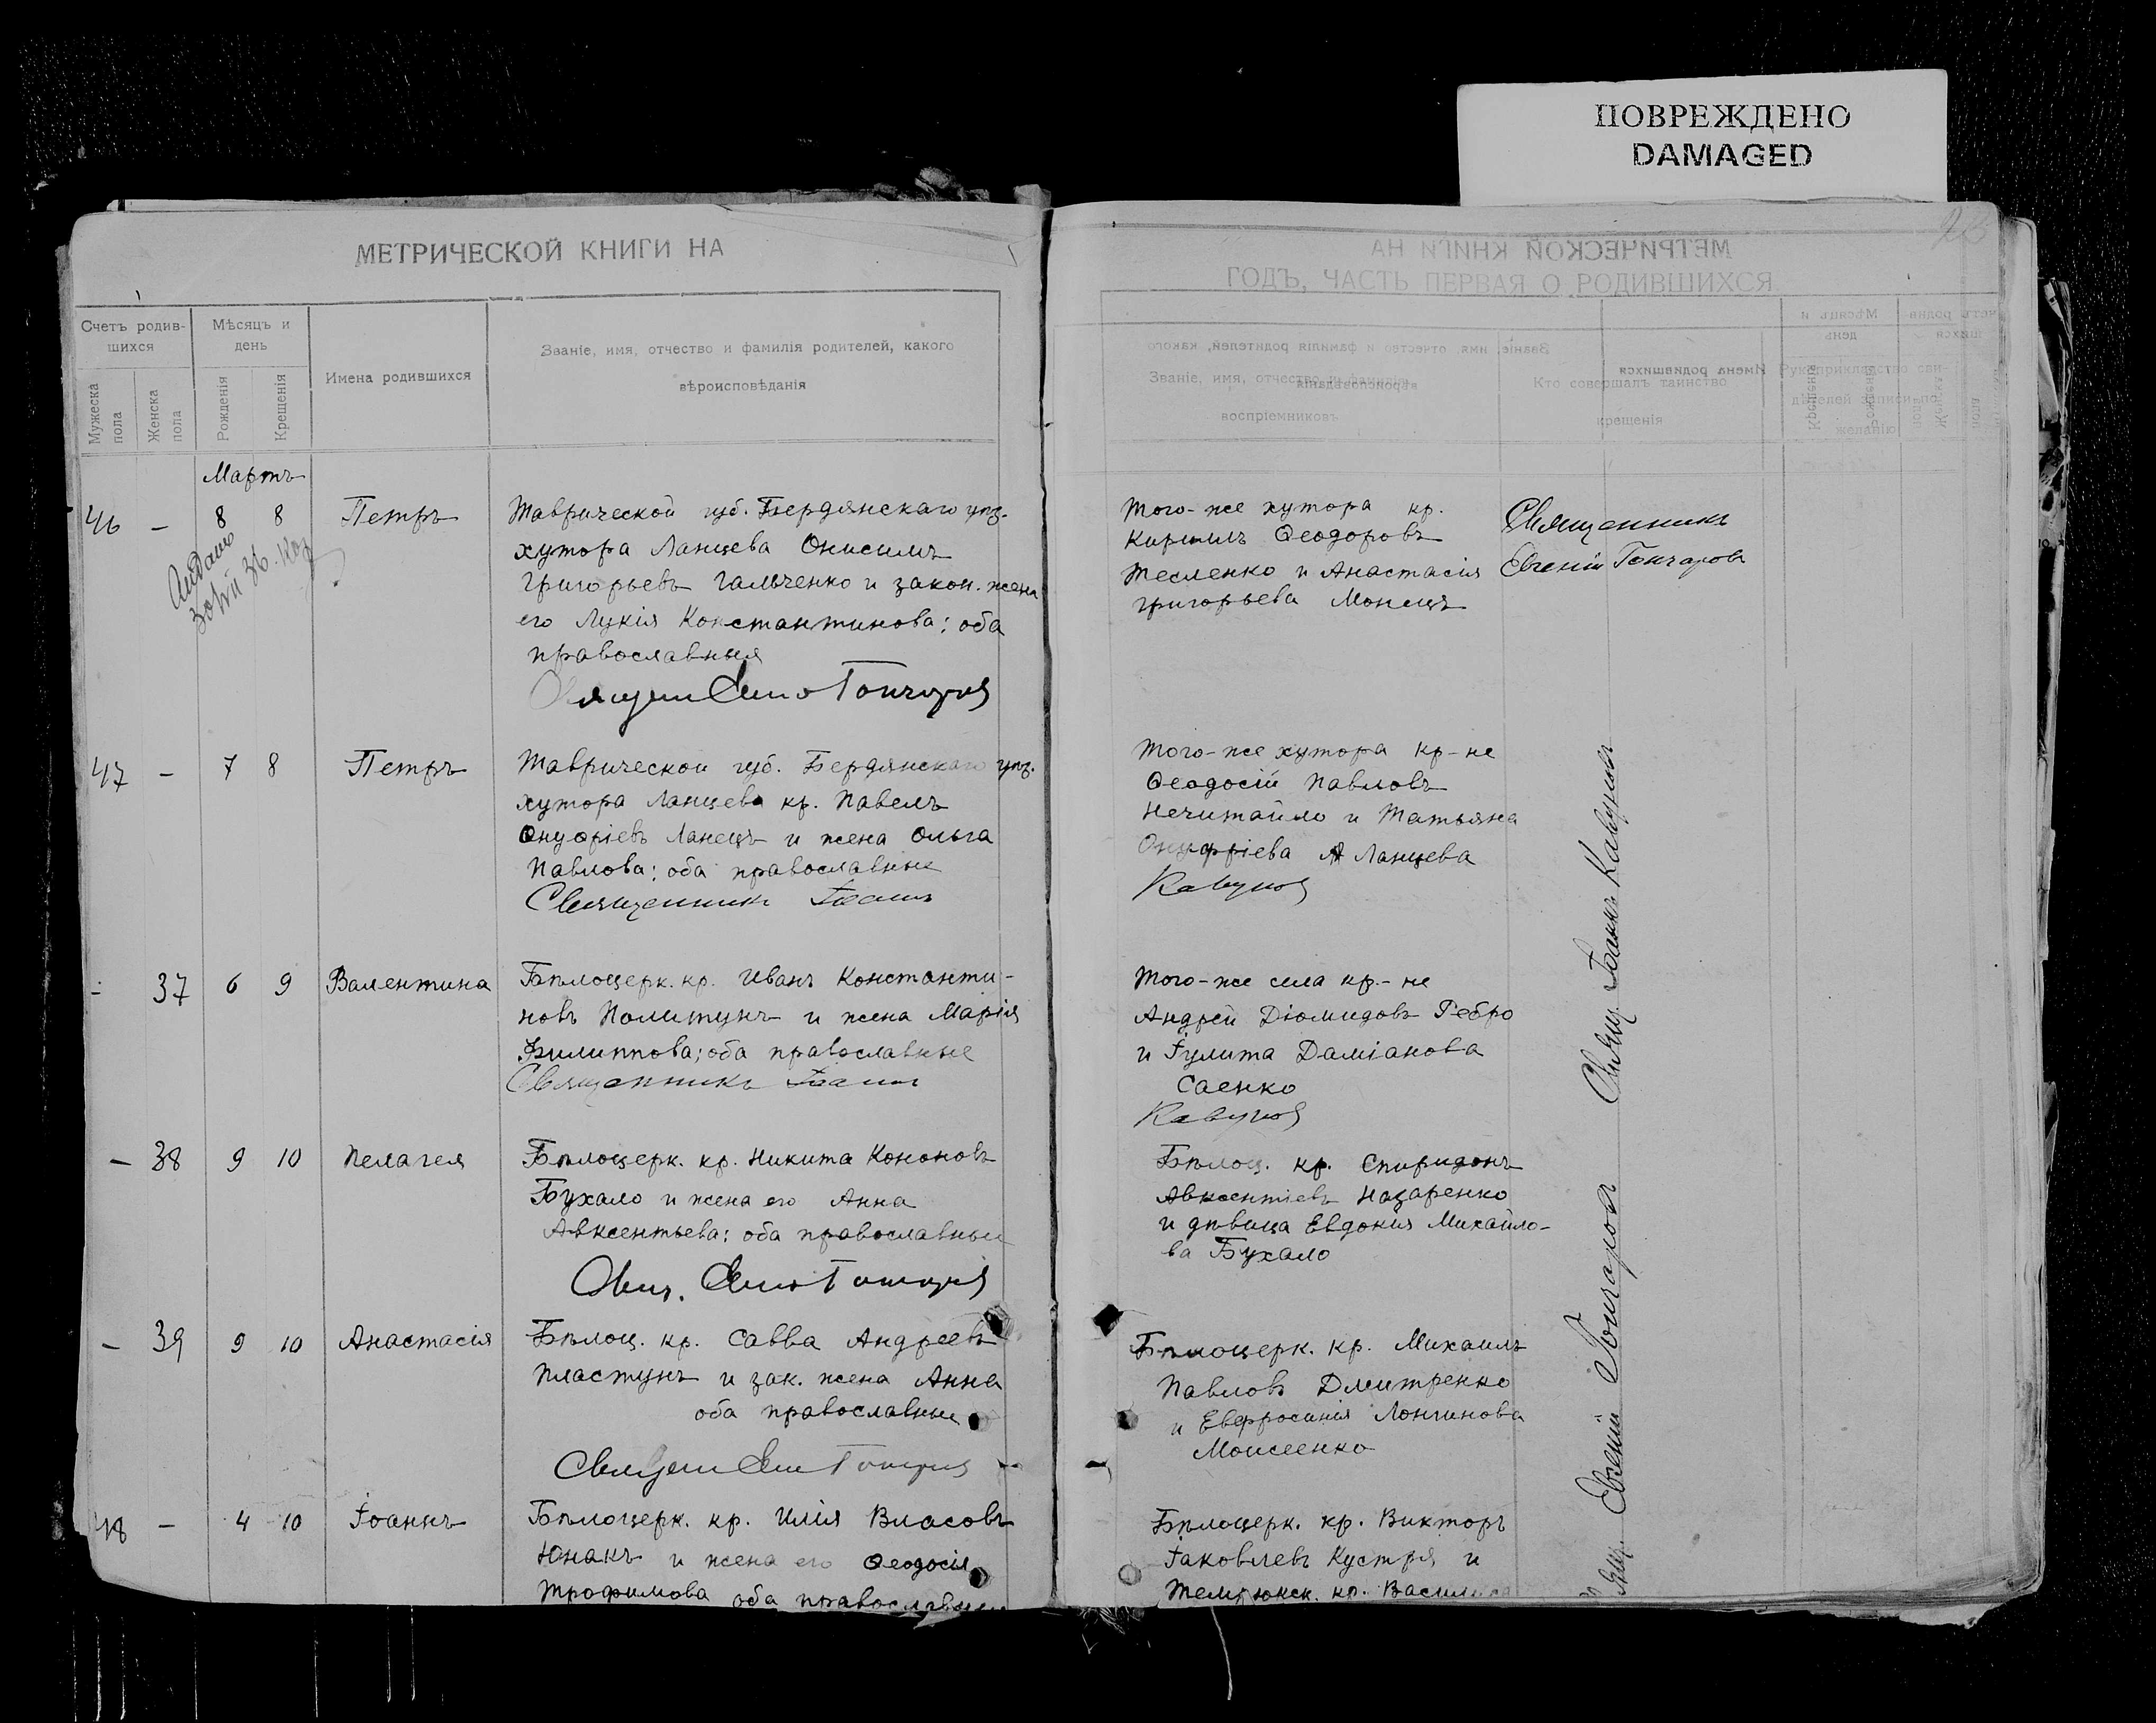 ПОВРЕЖДЕНО
DAMAGED
МЕТРИЧЕСКОЙ КНИГИ НА
Счетъ родив-
шихся
Мѣсяцъ и
день
Мужеска
пола
Женска
пола
Рожденія
Крещенія
Имена родившихся
Званіе, имя, отчество и фамилія родителей, какого
вѣроисповѣданія
Мартъ
46 - 8 8 Петръ
Таврической губ. Бердянскаго уѣз.
хутора Ланцева Онисимъ
Григорьевъ Гальченко и закон. жена
его Лукія Константинова: оба
православныя
47 - 7 8 Петръ
Таврической губ. Бердянскаго уѣз.
хутора Ланцева кр. Павелъ
Онуфріевъ Ланецъ и жена Ольга
Павлова: оба православные
Священникъ Іоаннъ
- 37 6 9 Валентина
Бѣлоцерк. кр. Иванъ Константи-
новъ Политунъ и жена Марія
Филиппова; оба православные
Священникъ Іоаннъ
- 38 9 10 Пелагея
Бѣлоцерк. кр. Никита Кононовъ
Бухало и жена его Анна
Авксентьева: оба православные
- 39 9 10 Анастасія
Бѣлоц. кр. Савва Андреевъ
Пластунъ и зак. жена Анна
оба православные
48 - 4 10 Іоаннъ
Бѣлоцерк. кр. Илія Власовъ
Юнакъ и жена его Ѳеодосія
Трофимова оба православные
ГОДЪ, ЧАСТЬ ПЕРВАЯ О РОДИВШИХСЯ
Званіе, имя, отчество и фамилія
воспріемниковъ
Кто совершалъ таинство
крещенія
Рукоприкладство сви-
дѣтелей записи по
желанію
Того-же хутора кр.
Кириллъ Ѳеодоровъ
Тесленко и Анастасія
Григорьева Монецъ
Священникъ
Евгеній Гончаровъ
Того-же хутора кр-не
Ѳеодосій Павловъ
Нечитайло и Татьяна
Онуфріева Ланцева
Кавуновъ
Того-же села кр.-не
Андрей Діомидовъ Ребро
и Іулита Даміанова
Саенко
Кавуновъ
Бѣлоц. кр. Спиридонъ
Авксентіевъ Назаренко
и дѣвица Евдокия Михайло-
ва Бухало
Бѣлоцерк. кр. Михаилъ
Павловъ Дмитренко
и Евфросинія Лонгинова
Моисеенко
Бѣлоцерк. кр. Викторъ
Іаковлевъ Кустря и
Темрюкск. кр. Василиса
Свящ. Іоаннъ Кавуновъ
Свящ. Евгеній Гончаровъ